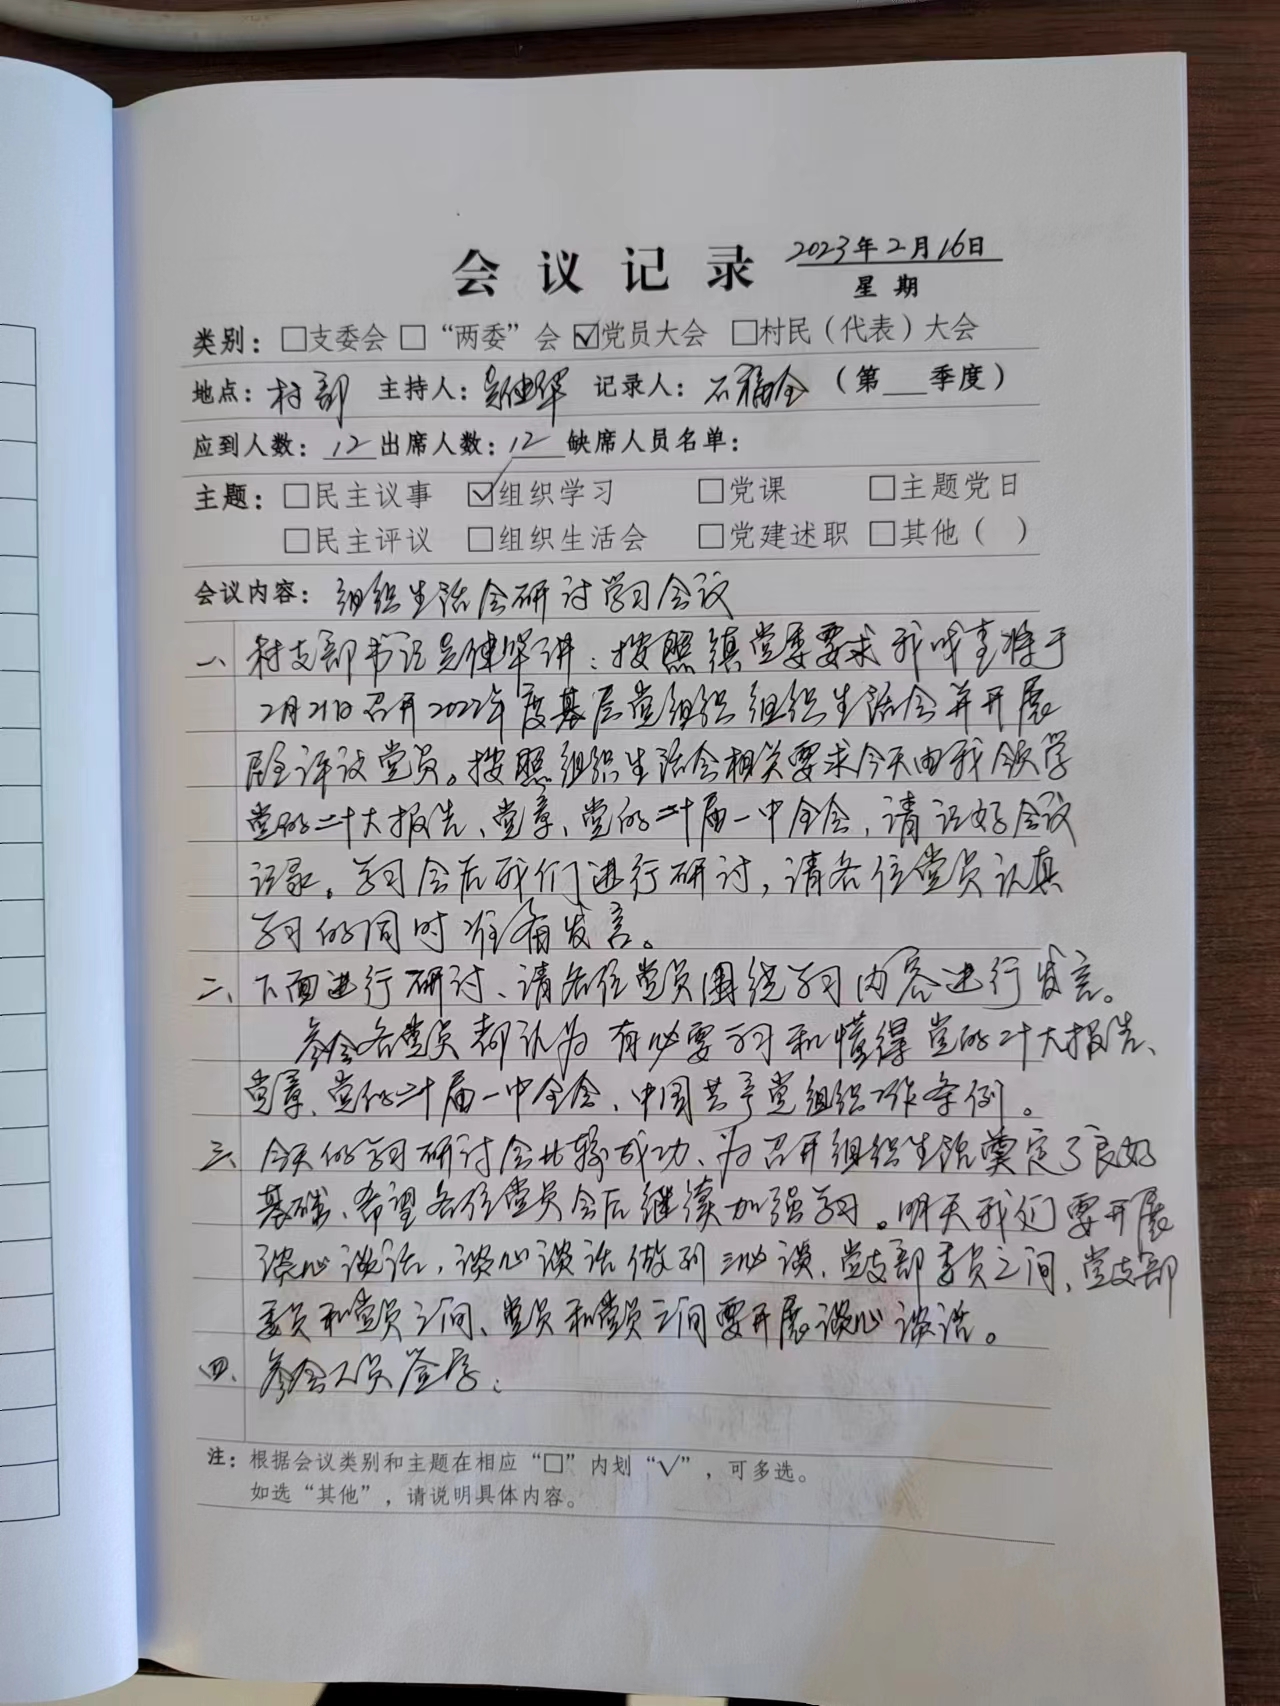 会议记录 2023年2月16日
星期
类别：□支委会 □“两委”会 ☑党员大会 □村民（代表）大会
地点：村部 主持人：吴建军 记录人：石福全 （第 季度）
应到人数：12 出席人数：12 缺席人员名单：
主题：□民主议事 ☑组织学习 □党课 □主题党日
□民主评议 □组织生活会 □党建述职 □其他（ ）
会议内容：组织生活会研讨学习会议
一、村支部书记吴建军讲：按照镇党委要求我村将于
2月21日召开2022年度基层党组织组织生活会并开展
民主评议党员。按照组织生活会相关要求今天由我领学
党的二十大报告、党章、党的二十届一中全会，请记好会议
记录。学习会后我们进行研讨，请各位党员认真
学习的同时准备发言。
二、下面进行研讨、请各位党员围绕学习内容进行发言。
参会各党员都认为有必要学习和懂得党的二十大报告、
党章、党的二十届一中全会、中国共产党组织工作条例。
三、今天的学习研讨会比较成功、为召开组织生活奠定了良好
基础、希望各位党员会后继续加强学习。明天我们要开展
谈心谈话，谈心谈话做到三必谈、党支部委员之间、党支部
委员和党员之间、党员和党员之间要开展谈心谈话。
四、参会人员签字：
注：根据会议类别和主题在相应“□”内划“√”，可多选。
如选“其他”，请说明具体内容。